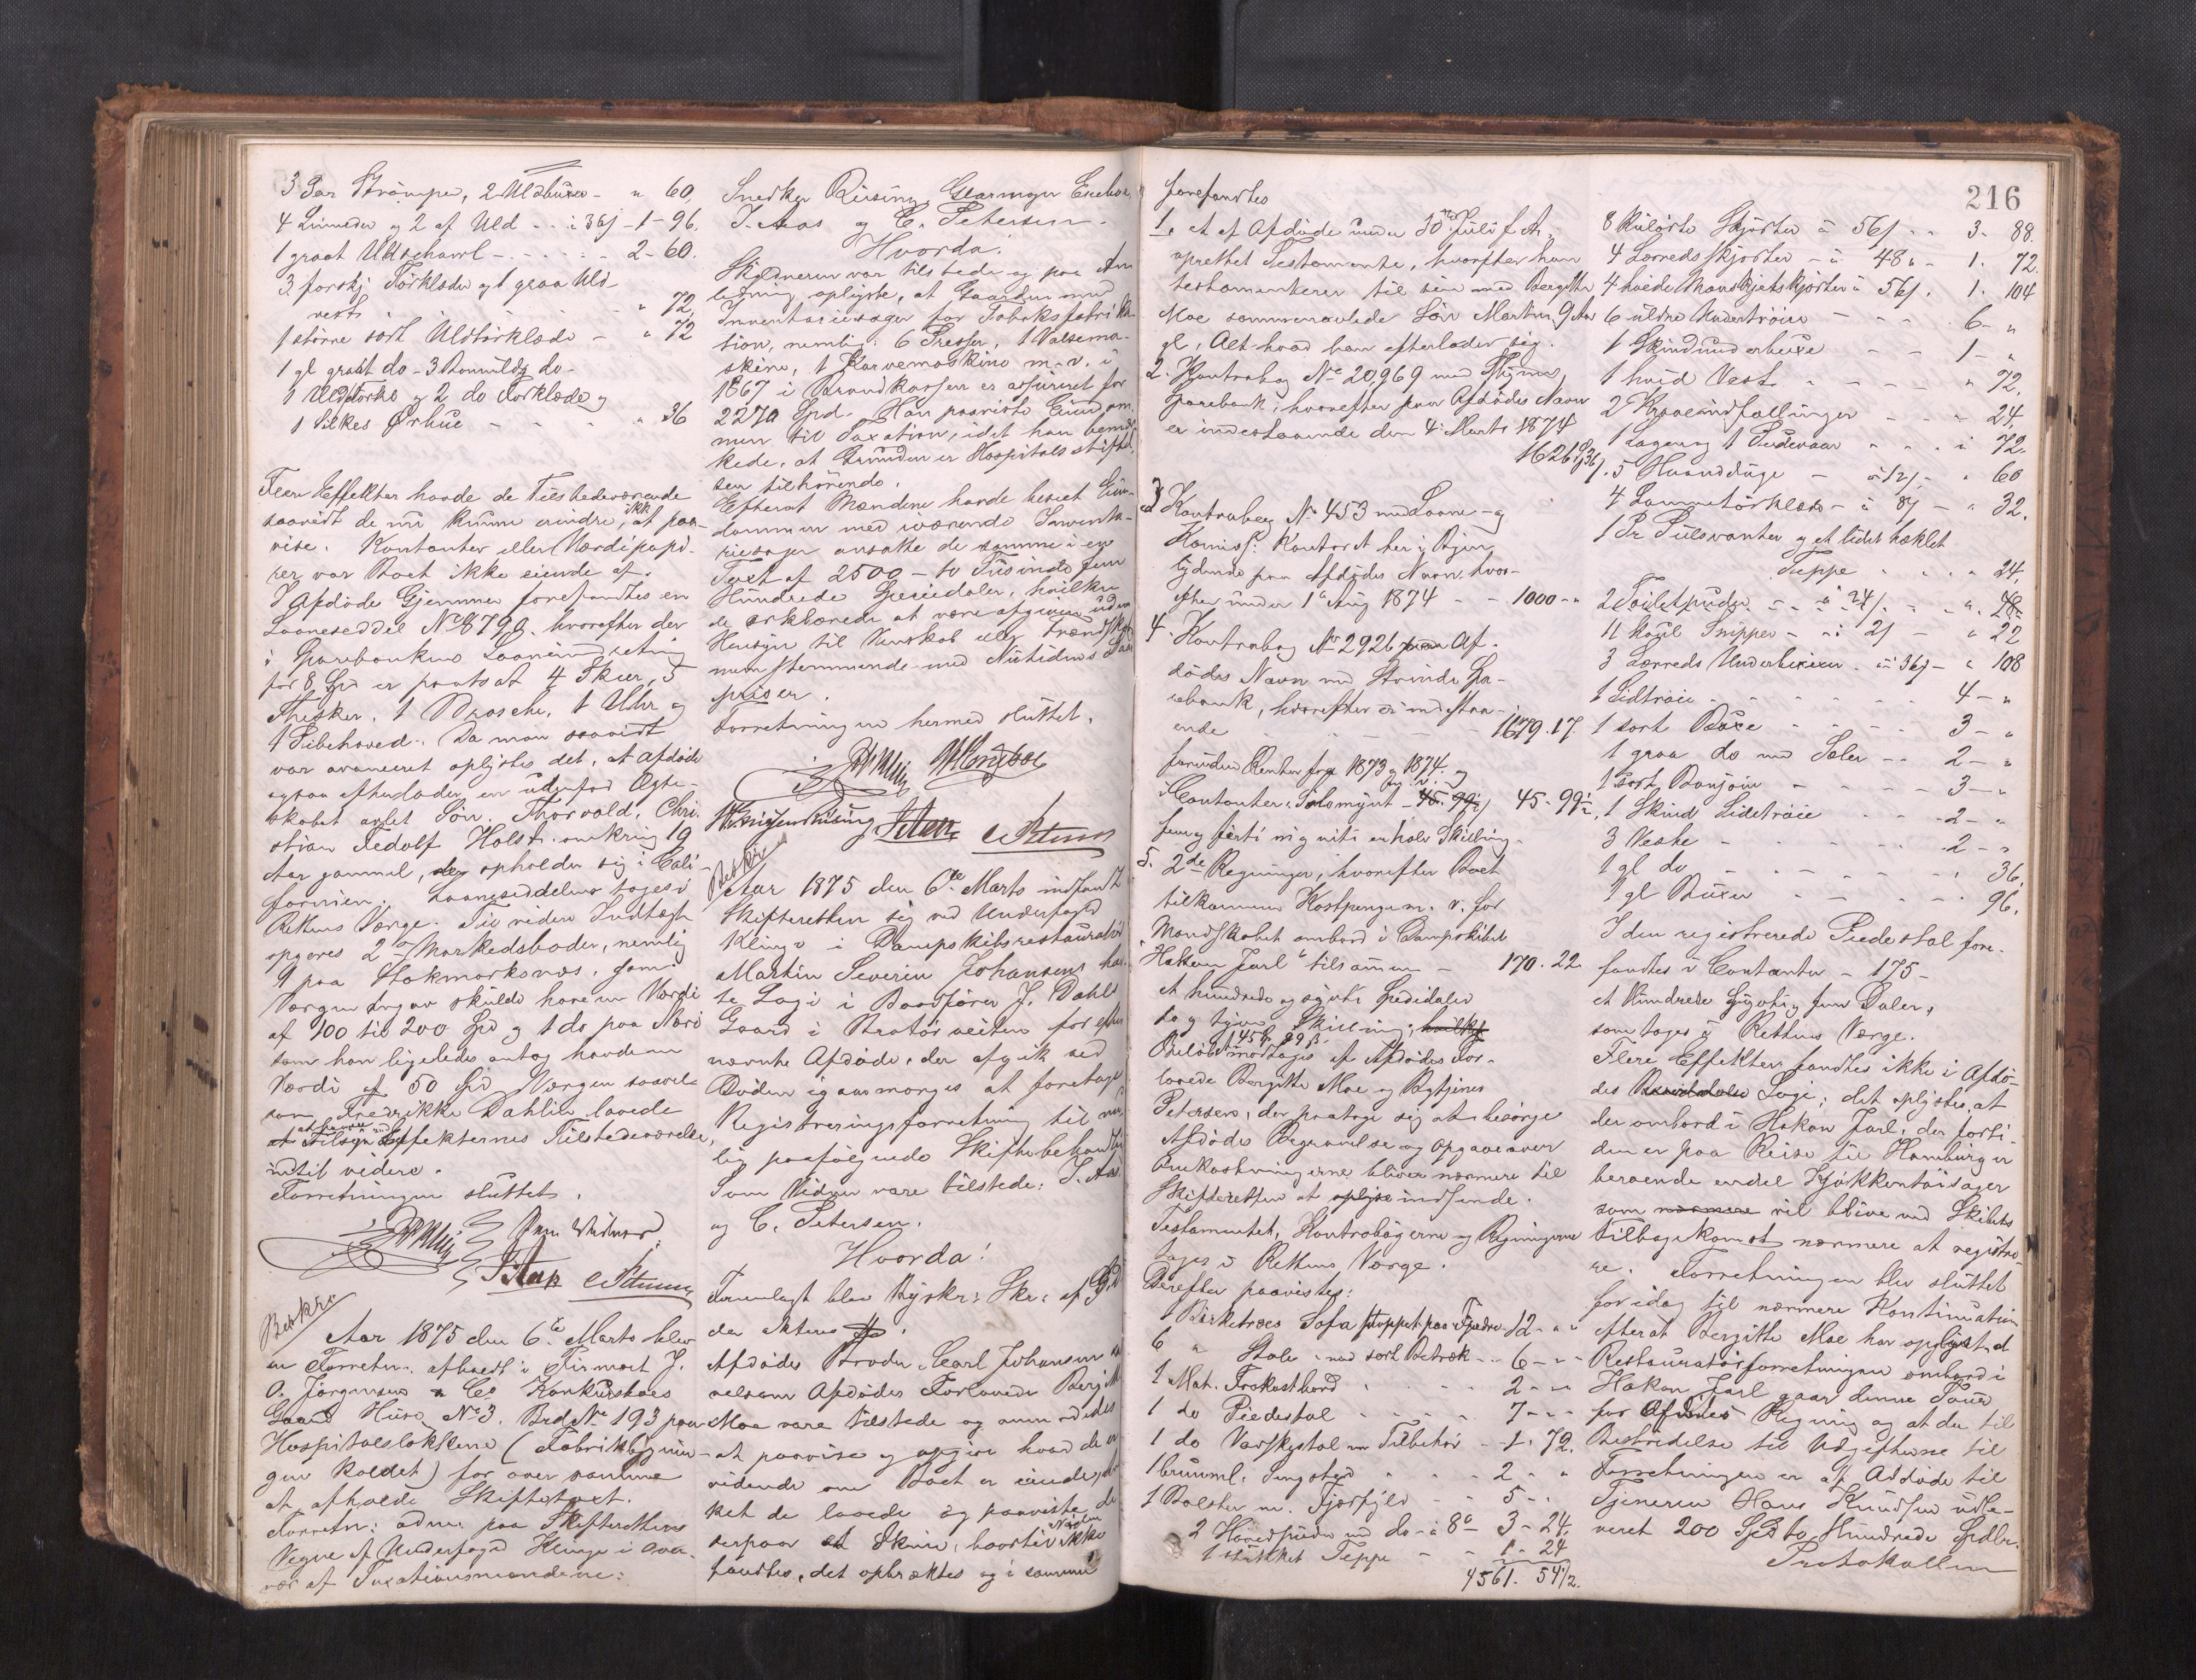 3 Par Strømper, 2 Uldbuxer - " 60,
4 Linneder og 2 af Uld - - à 36ß - 1 - 96.
1 graat Uldschawl - - - - - - 2 - 60.
3 forskj Törklæder og 1 graa Uld-
vest - - - " 72,
1 større sort Uldtörklæde - " 72
1 gl graat do - 3 Bomulds do -
1 Uldtörkl og 2 do Forklæder og
1 Silkes Ørhue - - - - " 36
Flere Effekter havde de Tilstedeværende
saavidt de nu kunne erindre, ikke at paa-
vise. Kontanter eller Værdipapi-
rer var Boet ikke eiende af.
I Afdødes Gjemmer forefandtes en
Laaneseddel No 8799. hvorefter der
i Sparebankens Laaneindretning
for 8 Spd er pantsat 4 Skeer, 5
Thesker, 1 Brosche, 1 Uhr og
1 Pibehoved. Da man saavidt
var avanceret oplystes det, at Afdøde
ogsaa efterlader en udenfor Ægte-
skabet avlet Søn, Thorvald, Chri-
stian Fedolf Holst, omkring 19
Aar gammel, der opholder sig i Cali-
fornien. Laaneseddelen toges i
Rettens Værge. Til videre Indtægt
opgives 2de Markedsboder, nemlig
1 paa Stokmarknæs, som
Værgen angav skulde have en Værdi
af 100 til 200 Spd og 1 do paa Nøri
som han ligeledes antog havde en
Værdi af 50 Spd. Værgen saavel
som Fredrikke Dahlin lovede
at have Tilsyn med Effekternes Tilstedeværelse,
indtil videre.
Forretningen sluttet.
J Aas C Petersen
Beskr.
Aar 1875 den 6te Marts blev
en Forretn. afholdt i Firmaet J.
O. Jørgensen & Co Konkursboes
Gaard Huse No 3. Brd No 193 paa
Hospitalsløkkene (Fabrikbygnin-
gen kaldet) for over samme
at afholde Skiftetaxt.
Forretn: adm. paa Skifterettens
Vegne af Underfoged Klinge i Over-
vær af Taxationsmændene:
Snedker Rising, Glarmager
J. Aas og C. Petersen.
Hvorda!
Skyldneren var tilstede og paa An-
ledning oplyste, at Gaarden med
Inventariesager for Tobaksfabrika-
tion, nemlig: 6 Presser, 1 Valsema-
skine, 1 Karvemaskine m. v. i
1867 i Brandkassen er assureret for
2270 Spd. Han paaviste Eiendom-
men til Taxation, idet han bemær-
kede, at Grunden er Hospitals stiftel-
sen tilhørende.
Efterat Mændene havde beseet Eien-
dommen med iværende Inventa-
riesager ansatte de samme i en
Taxt af 2500 - to Tusinde fem
Hundrede Speciedaler, hvilken
de erklærede at være afgiven uden
Hensyn til Venskab eller Frændskab
men stemmende med Nutidens
priser.
Forretningen hermed sluttet.
J Aas C Petersen
Beskr.
Aar 1875 den 6te Marts indfandt
Skifteretten sig ved Underfoged
Klinge i Dampskibsrestauratør
Martin Severin Johansens hav-
te Logi i Baadfører J. Dahls
Gaard i Bratørveiten for efter
nævnte Afdøde, der afgik ved
Døden igaarmorges at foretage
Registreringsforretning til mu-
lig paafølgende Skiftebehandling
Som Vidner vare tilstede: J. Aas
og C. Petersen.
Hvorda!
Fremlagt blev
der akteres
Afdødes Broder Carl Johansen saa
velsom Afdødes Forlovede Bergitte
Moe vare tilstede og anmodedes
at paavise og opgive hvad de er
vidende om Boet er eiende, hvil-
ket de lovede og paaviste der-
derpaa et Skrin, hvortil Nøglen ikke
fandtes, det opbrøktes og i samme
216
forefandtes
1. et af Afdøde under 30te Juli f. A.
oprettet Testamente, hvorefter han
testamenterer til sin med Bergitte
Moe sammenavlede Søn Martin, 9 Aar
gl, Alt hvad han efterlader sig.
2. Kontrabog No 20,969 med Thjems
Sparebank, hvorefter paa Afdødes Navn
er indestaaende den 4 Marts 1874
1626 Spd 36ß.
3 Kontrabog No 453 med Laane- og
Komiss. Kontoret her i Byen
lydende paa Afdødes Navn, hvor-
efter under 1ste Aug 1874 - - 1000 - "
4. Kontrabog No 2926 paa Af-
dødes Navn med Strinde Spa-
rebank, hvorefter er indestaa-
ende - - - - 1679. 17.
foruden Renter for 1873 og 1874. og
i Contanter: Sølvmynt - 45. 99½ 45 - 99½,
femog førti og niti en halv Skilling
5. 2de Regninger, hvorefter Boet
tilkommer Kostpenge m. v. for
Mandskabet ombord i Dampskibet
"Hakon Jarl" tilsammen - 170. 22.
et hundrede og sytti Speciedaler
to og tyve Skilling, hvilket
Beløbet 45 99ß. modtages af Afdødes For-
lovede Bergitte Moe og
Petersen, der paatage sig at besørge
Afdødes Begravelse og Opgave over
Omkostningerne bliver nærmere til
Skifteretten at oplyse indsende.
Testamentet, Kontrabøgerne og Regningerne
toges i Rettens Værge.
Derefter paavistes:
1 Birketræs Sofa stoppet paa Fjedre 12 - "
6 " Stole med sort Betræk - - 6 - "
1 Mah. Frokostbord - - - 2 - "
1 do Piedestal - - - 7 - "
1 do Vaskestol m Tilbehør - 1. 72.
1 brunml. Sengsted - - 2 - "
1 Bolster m. Fjærfyld - - 5 - "
2 Hovedpuder med do - à 8ß - 3 - 24.
1 stukket Teppe - - 1 - 24
4561. 54½.
8 kulørte Skjorter à 56ß - - 3 - 88.
4 Lærreds skjorter - à 48 " - 1. 72.
4 hvide Manskjetskjorter à 56ß. 1. 104
6 uldne Undertrøier - - - 6 - "
1 Skindunderbuxe - - 1 - "
1 hvid Vest - - - - " 72,
2 Kraveindfatninger - - " 24,
1 Lagen og 1 Pudevaar - - - 72.
5 Haandduge - à 12ß - " 60
4 Lommetörklæder - à 8ß - " 32.
1 Pr Pulsvanter og et lidet heklet
Teppe - - - " 24,
2 Toiletpuder - - à 24ß. - - " 48.
11 Snipper - - à 2ß - " 22
3 Lærreds Underbuxer - à 36ß - " 108
1 Sidtrøie - - - - 4 - "
1 sort Buxe - - - 3 - "
1 graa do med Seler - - 2 - "
1 sort Bonjour - - - 3 - "
1 Skind Sidetrøie - - - 2 - "
3 Veste - - - - - 2 - "
1 gl do - - - - - 36,
1 gl Buxer - - - - 96,
I den registrerede Piedestal fore-
fandtes i Contanter - 175 -
et Hundrede Sytti og fem Daler,
som toges i Rettens Værge.
Flere Effekter fandtes ikke i Afdø-
des Logi; det oplystes, at
der ombord i Hakon Jarl, der forti-
den er paa Reise til Hamburg er
beroende endel Kjøkkentøisager
som nærmere vil blive ved Skibets
Tilbagekomst nærmere at registre-
re. Forretningen blev sluttet
foridag til nærmere Kontinuation
efterat Bergitte Moe har oplyst at
Restauratørforretningen ombord i
Hakon Jarl gaar denne Tour
for Afdødes Regning og at der til
Bestridelse til Udgifterne til
Forretningen er af Afdøde til
Tjeneren Hans Knudsen udle-
veret 200 Spd to Hundrede Spdlr.
Protokollen